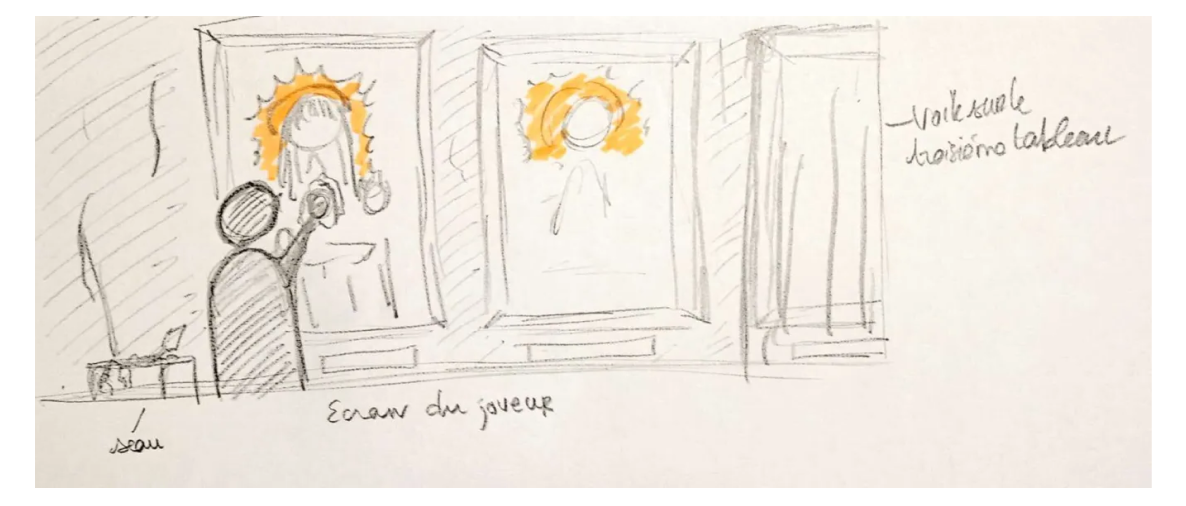 Voile sur le
troisième tableau
Ecran du joueur
seau